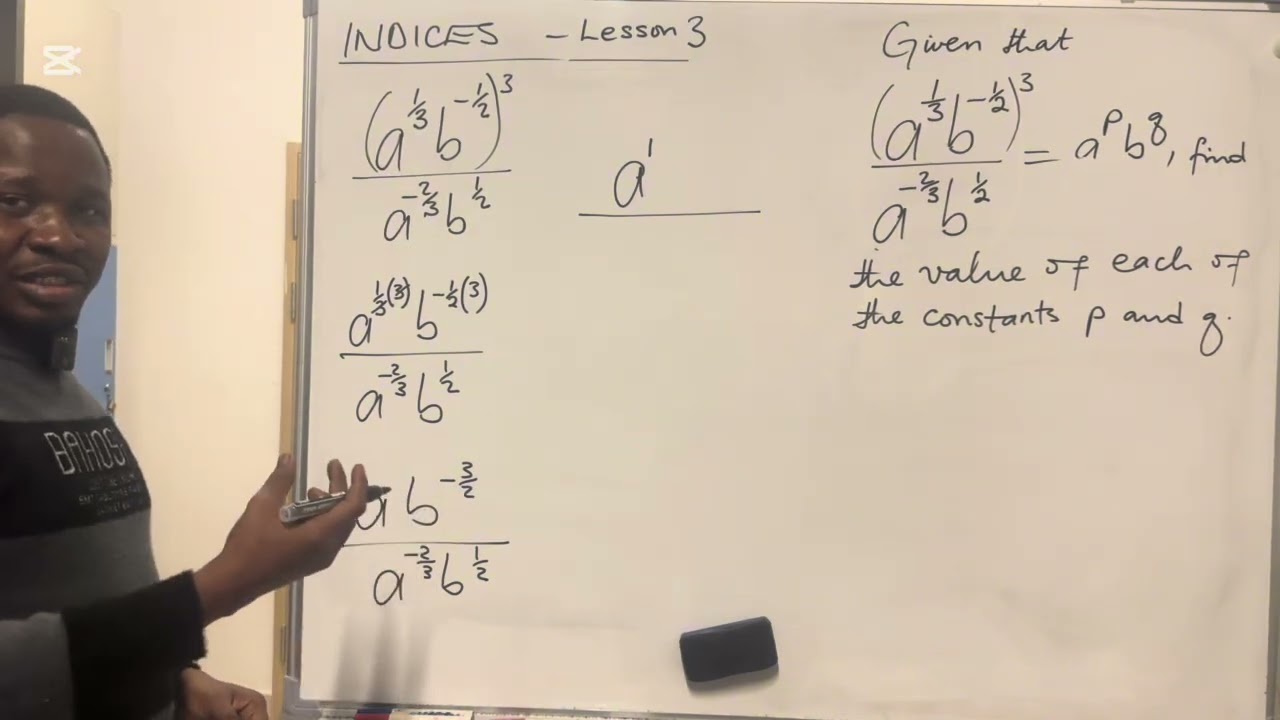 INDICES - Lesson 3
(a^{1/3} b^{-1/2})^3
a^{-2/3} b^{1/2}
a^{1/3(3)} b^{-1/2(3)}
a^{-2/3} b^{1/2}
a b^{-3/2}
a^{-2/3} b^{1/2}
a^1
Given that
(a^{1/3} b^{-1/2})^3
a^{-2/3} b^{1/2}
= a^p b^q, find
the value of each of
the constants p and q.
BAHOS